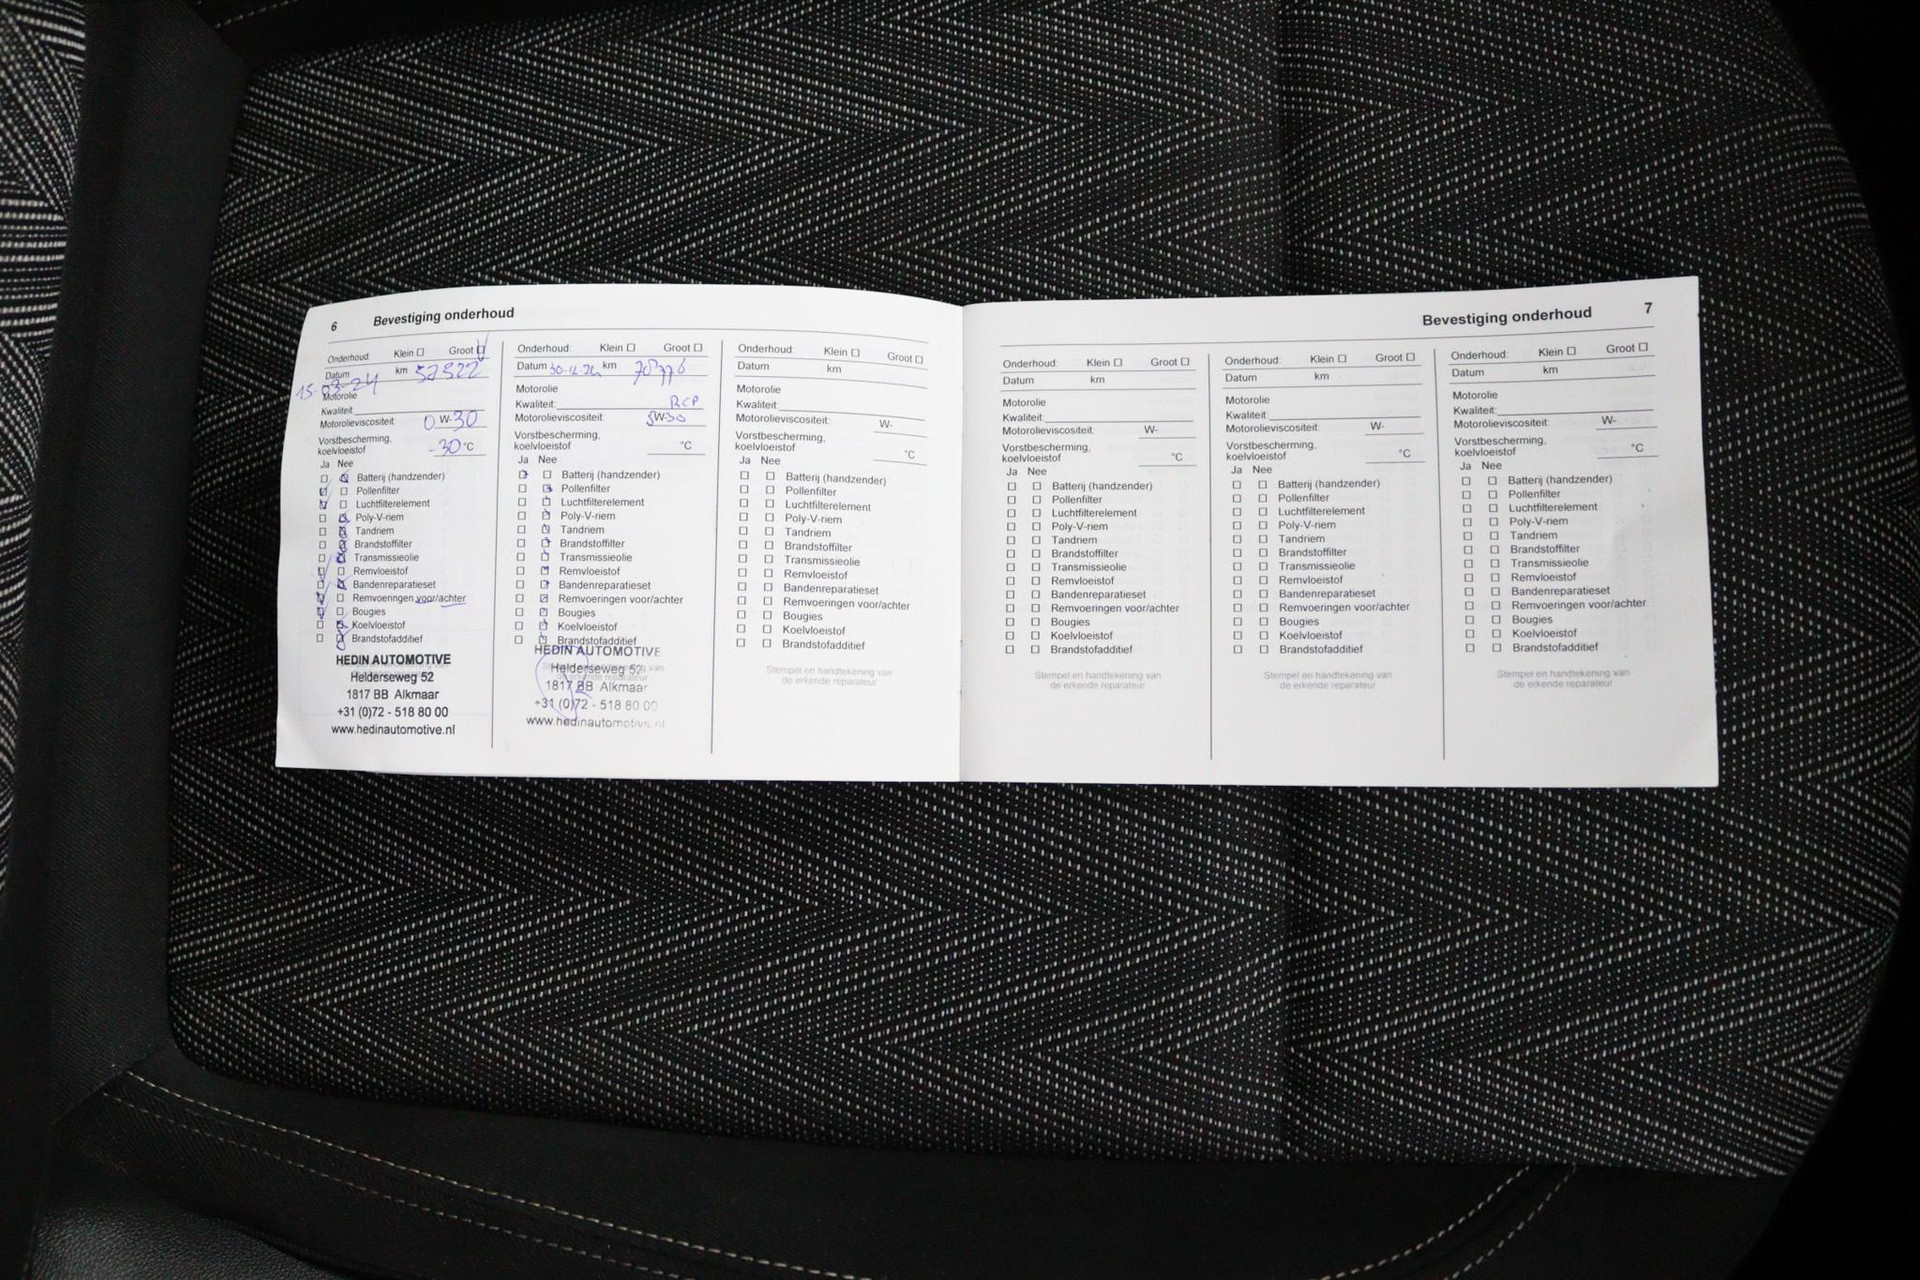 6 Bevestiging onderhoud
Onderhoud: Klein Groot
Datum km 52522
15-03-24
Motorolie
Kwaliteit:
Motorolieviscositeit: 0 W-30
Vorstbescherming,
koelvloeistof -30 °C
Ja Nee
Batterij (handzender)
Pollenfilter
Luchtfilterelement
Poly-V-riem
Tandriem
Brandstoffilter
Transmissieolie
Remvloeistof
Bandenreparatieset
Remvoeringen voor/achter
Bougies
Koelvloeistof
Brandstofadditief
HEDIN AUTOMOTIVE
Helderseweg 52
1817 BB Alkmaar
+31 (0)72 - 518 80 00
www.hedinautomotive.nl
Onderhoud: Klein Groot
Datum 30-12-24 km 70776
Motorolie
Kwaliteit: RCP
Motorolieviscositeit: 5W-30
Vorstbescherming,
koelvloeistof °C
Ja Nee
Batterij (handzender)
Pollenfilter
Luchtfilterelement
Poly-V-riem
Tandriem
Brandstoffilter
Transmissieolie
Remvloeistof
Bandenreparatieset
Remvoeringen voor/achter
Bougies
Koelvloeistof
Brandstofadditief
HEDIN AUTOMOTIVE
Helderseweg 52
1817 BB Alkmaar
+31 (0)72 - 518 80 00
www.hedinautomotive.nl
Onderhoud: Klein Groot
Datum km
Motorolie
Kwaliteit:
Motorolieviscositeit: W-
Vorstbescherming,
koelvloeistof °C
Ja Nee
Batterij (handzender)
Pollenfilter
Luchtfilterelement
Poly-V-riem
Tandriem
Brandstoffilter
Transmissieolie
Remvloeistof
Bandenreparatieset
Remvoeringen voor/achter
Bougies
Koelvloeistof
Brandstofadditief
Stempel en handtekening van
de erkende reparateur
Bevestiging onderhoud 7
Onderhoud: Klein Groot
Datum km
Motorolie
Kwaliteit:
Motorolieviscositeit: W-
Vorstbescherming,
koelvloeistof °C
Ja Nee
Batterij (handzender)
Pollenfilter
Luchtfilterelement
Poly-V-riem
Tandriem
Brandstoffilter
Transmissieolie
Remvloeistof
Bandenreparatieset
Remvoeringen voor/achter
Bougies
Koelvloeistof
Brandstofadditief
Stempel en handtekening van
de erkende reparateur
Onderhoud: Klein Groot
Datum km
Motorolie
Kwaliteit:
Motorolieviscositeit: W-
Vorstbescherming,
koelvloeistof °C
Ja Nee
Batterij (handzender)
Pollenfilter
Luchtfilterelement
Poly-V-riem
Tandriem
Brandstoffilter
Transmissieolie
Remvloeistof
Bandenreparatieset
Remvoeringen voor/achter
Bougies
Koelvloeistof
Brandstofadditief
Stempel en handtekening van
de erkende reparateur
Onderhoud: Klein Groot
Datum km
Motorolie
Kwaliteit:
Motorolieviscositeit: W-
Vorstbescherming,
koelvloeistof °C
Ja Nee
Batterij (handzender)
Pollenfilter
Luchtfilterelement
Poly-V-riem
Tandriem
Brandstoffilter
Transmissieolie
Remvloeistof
Bandenreparatieset
Remvoeringen voor/achter
Bougies
Koelvloeistof
Brandstofadditief
Stempel en handtekening van
de erkende reparateur